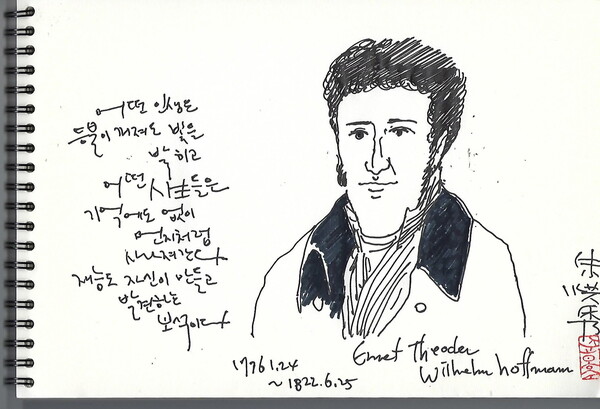 어떤 인생은
등불이 꺼져도 빛을
밝히고
어떤 사람들은
기억에도 없이
먼지처럼
사라져간다
재능도 자신이 만들고
발견하는
보석이다
1776.1.24
~1822.6.25
Ernst Theodor
Wilhelm hoffmann